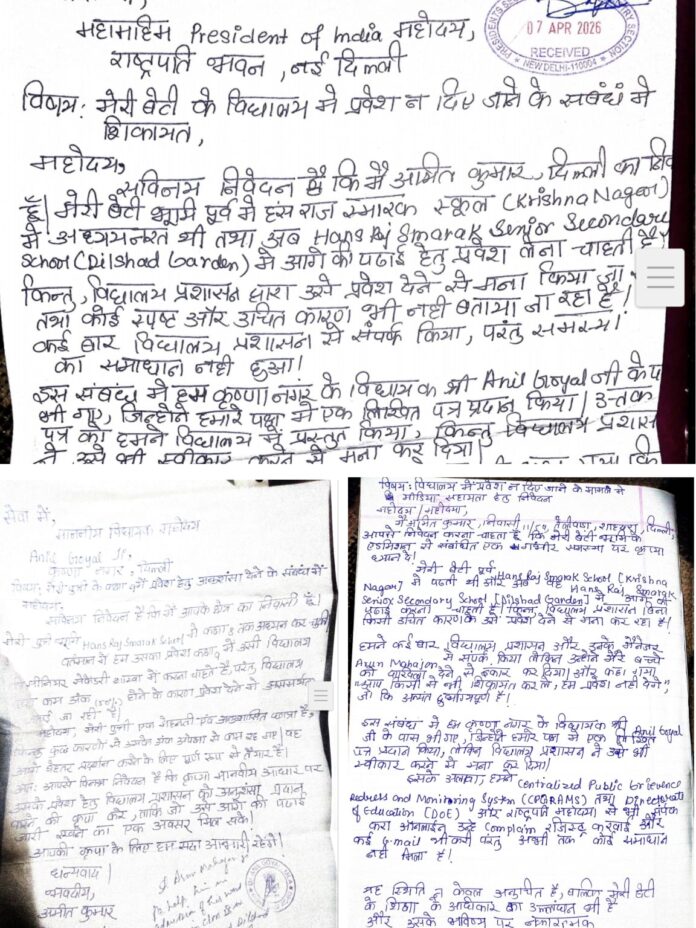 महामहिम President of India महोदय,
राष्ट्रपति भवन, नई दिल्ली
07 APR 2026
RECEIVED
NEW DELHI-110004
विषय: मेरी बेटी के विद्यालय मे प्रवेश न दिए जाने के सबंधं मे
शिकायत,
महोदय,
सविनय निवेदन है कि मै अमित कुमार, दिल्ली का
हूँ। मेरी बेटी भूमी पूर्व मे हंस राज स्मारक स्कूल (Krishna Nagar)
मे अध्ययनरत थी तथा अब Hans Raj Smarak Senior Secondary
School (Dilshad Garden) मे आगे की पढाई हेतु प्रवेश लेना चाहती है,
किन्तु, विद्यालय प्रशासन द्वारा उसे प्रवेश देने से मना किया जा
तथा कोई स्पष्ट और उचित कारण भी नही बताया जा रहा है।
कई बार विद्यालय प्रशासन से संपर्क किया, परंतु समस्या
का समाधान नही हुआ।
इस संबंध मे हम कृष्णा नगर के विधायक श्री Anil Goyal जी के
भी गए, जिन्होंने हमारे पक्ष मे एक लिखित पत्र प्रदान किया।
पत्र को हमने विद्यालय मे प्रस्तुत किया, किन्तु विद्यालय
ने उसे भी स्वीकार करने से मना कर दिया।
सेवा में,
माननीय विधायक महोदय
Anil Goyal Ji,
कृष्णा नगर, दिल्ली
विषय: मेरी पुत्री के कक्षा 9 मे प्रवेश हेतु अनुशंसा देने के संबंध में
महोदय,
सविनय निवेदन है कि मै आपके क्षेत्र का निवासी हूँ।
मेरी पुत्री Hans Raj Smarak School से कक्षा 8 तक अध्ययन कर चुकी
वर्तमान मे हम उसका प्रवेश कक्षा 9 मे उसी विद्यालय
सीनियर सेकेंडरी शाखा मे करना चाहते है, परंतु विद्यालय
कम अंक होने के कारण प्रवेश देने से असमर्थता
जा रही है।
महोदय, मेरी पुत्री एक मेहनती एवं अनुशासित छात्रा है,
किन्तु कुछ कारणो से उसके अंक अपेक्षा से कम रह गए। वह
आगे बेहतर प्रदर्शन करने के लिए पूर्ण रूप से तैयार है।
अतः आपसे विनम्र निवेदन है कि कृपया मानवीय आधार पर
उसके प्रवेश हेतु विद्यालय प्रशासन को अनुशंसा प्रदान
करने की कृपा करे, ताकि उसे आगे की पढाई
जारी रखने का एक अवसर मिल सके।
आपकी कृपा के लिए हम सदा आभारी रहेंगे।
धन्यवाद।
भवदीय,
अमीत कुमार
विषय: विद्यालय में प्रवेश न दिए जाने के मामले मे
मीडिया सहायता हेतु निवेदन
महोदय / महोदया,
मै अमित कुमार, निवासी तेलीवाड़ा, शाहदरा, दिल्ली,
आपसे निवेदन करना चाहता हूँ कि मेरी बेटी भूमी के
एडमिशन से संबंधित एक गंभीर समस्या पर कृपया
ध्यान दे।
मेरी बेटी पूर्व Hans Raj Smarak School [Krishna
Nagar] मे पढती थी और अब वह Hans Raj Smarak
Senior Secondary School [Dilshad Garden] मे आगे की
पढाई करना चाहती है। किन्तु विद्यालय प्रशासन बिना
किसी उचित कारण के उसे प्रवेश देने से मना कर रहा है।
हमने कई बार विद्यालय प्रशासन और उनके मैनेजर
Arun Mahajan से संपर्क किया लेकिन उन्होने मेरे बच्चे
को दाखिला देने से इंकार कर दिया। और कहा गया
"आप किसी से भी शिकायत कर ले, हम प्रवेश नही देंगे",
जो कि अत्यंत दुर्भाग्यपूर्ण है।
इस संबंध मे हम कृष्णा नगर के विधायक श्री Anil Goyal
जी के पास भी गए, जिन्होने हमारे पक्ष मे एक लिखित
पत्र प्रदान किया, लेकिन विद्यालय प्रशासन ने उसे भी
स्वीकार करने से मना कर दिया।
इसके अलावा, हमने Centralized Public Grievence
Redress and Monitoring System (CPGRAMS) तथा Directorate
of Education (DOE) और राष्ट्रपति महोदया से भी संपर्क
करा ऑनलाईन उन्हे Complain रजिस्टर करवाई और
कई E-mail भी करी परंतु अभी तक कोई समाधान
नही मिला है।
यह स्थिति न केवल अनुचित है, बल्कि मेरी बेटी
के शिक्षा के अधिकार का उल्लंघन भी है
और उसके भविष्य पर नकारात्मक